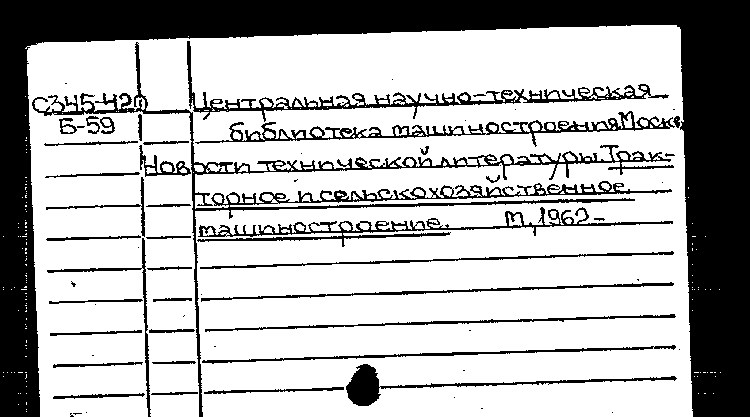 С345-420 Центральная научно-техническая
Б-59 библиотека машиностроения. Москва
Новости технической литературы. Трак-
торное и сельскохозяйственное
машиностроение. М., 1963-